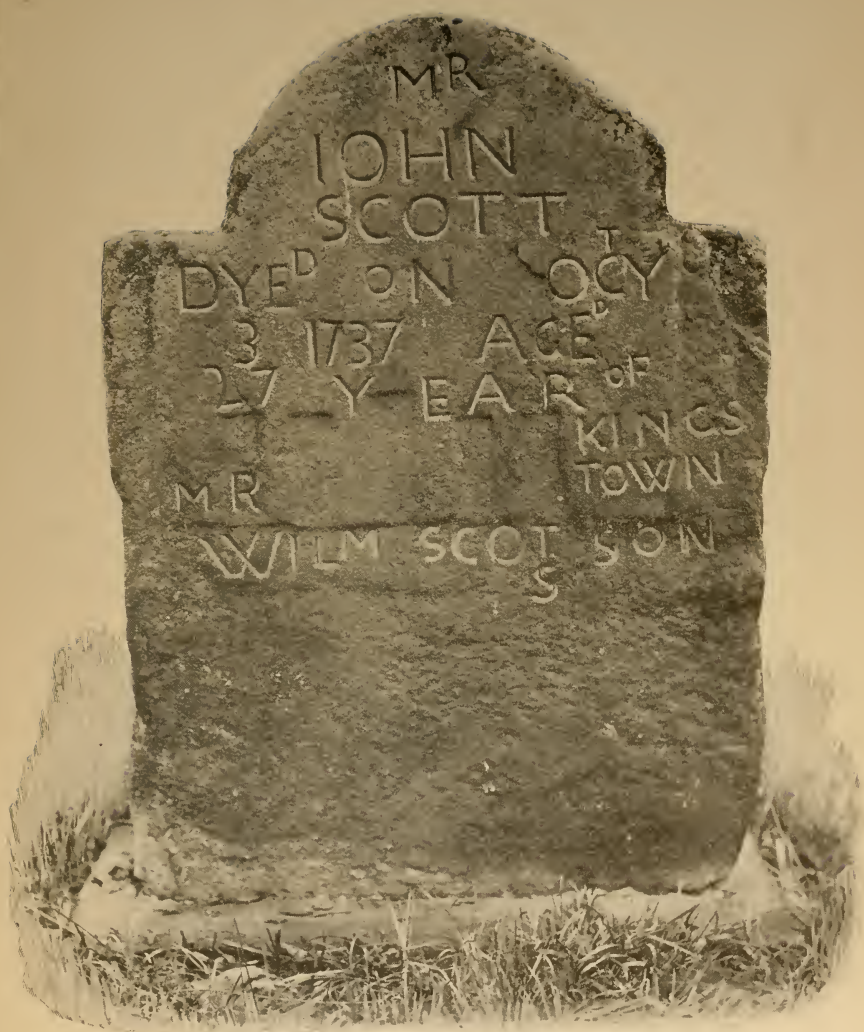 MR
IOHN
SCOTT
DYED ON OCTY
3 1737 AGED
27 YEAR OF
KINGS
TOWN
MR
WILM SCOTS SON